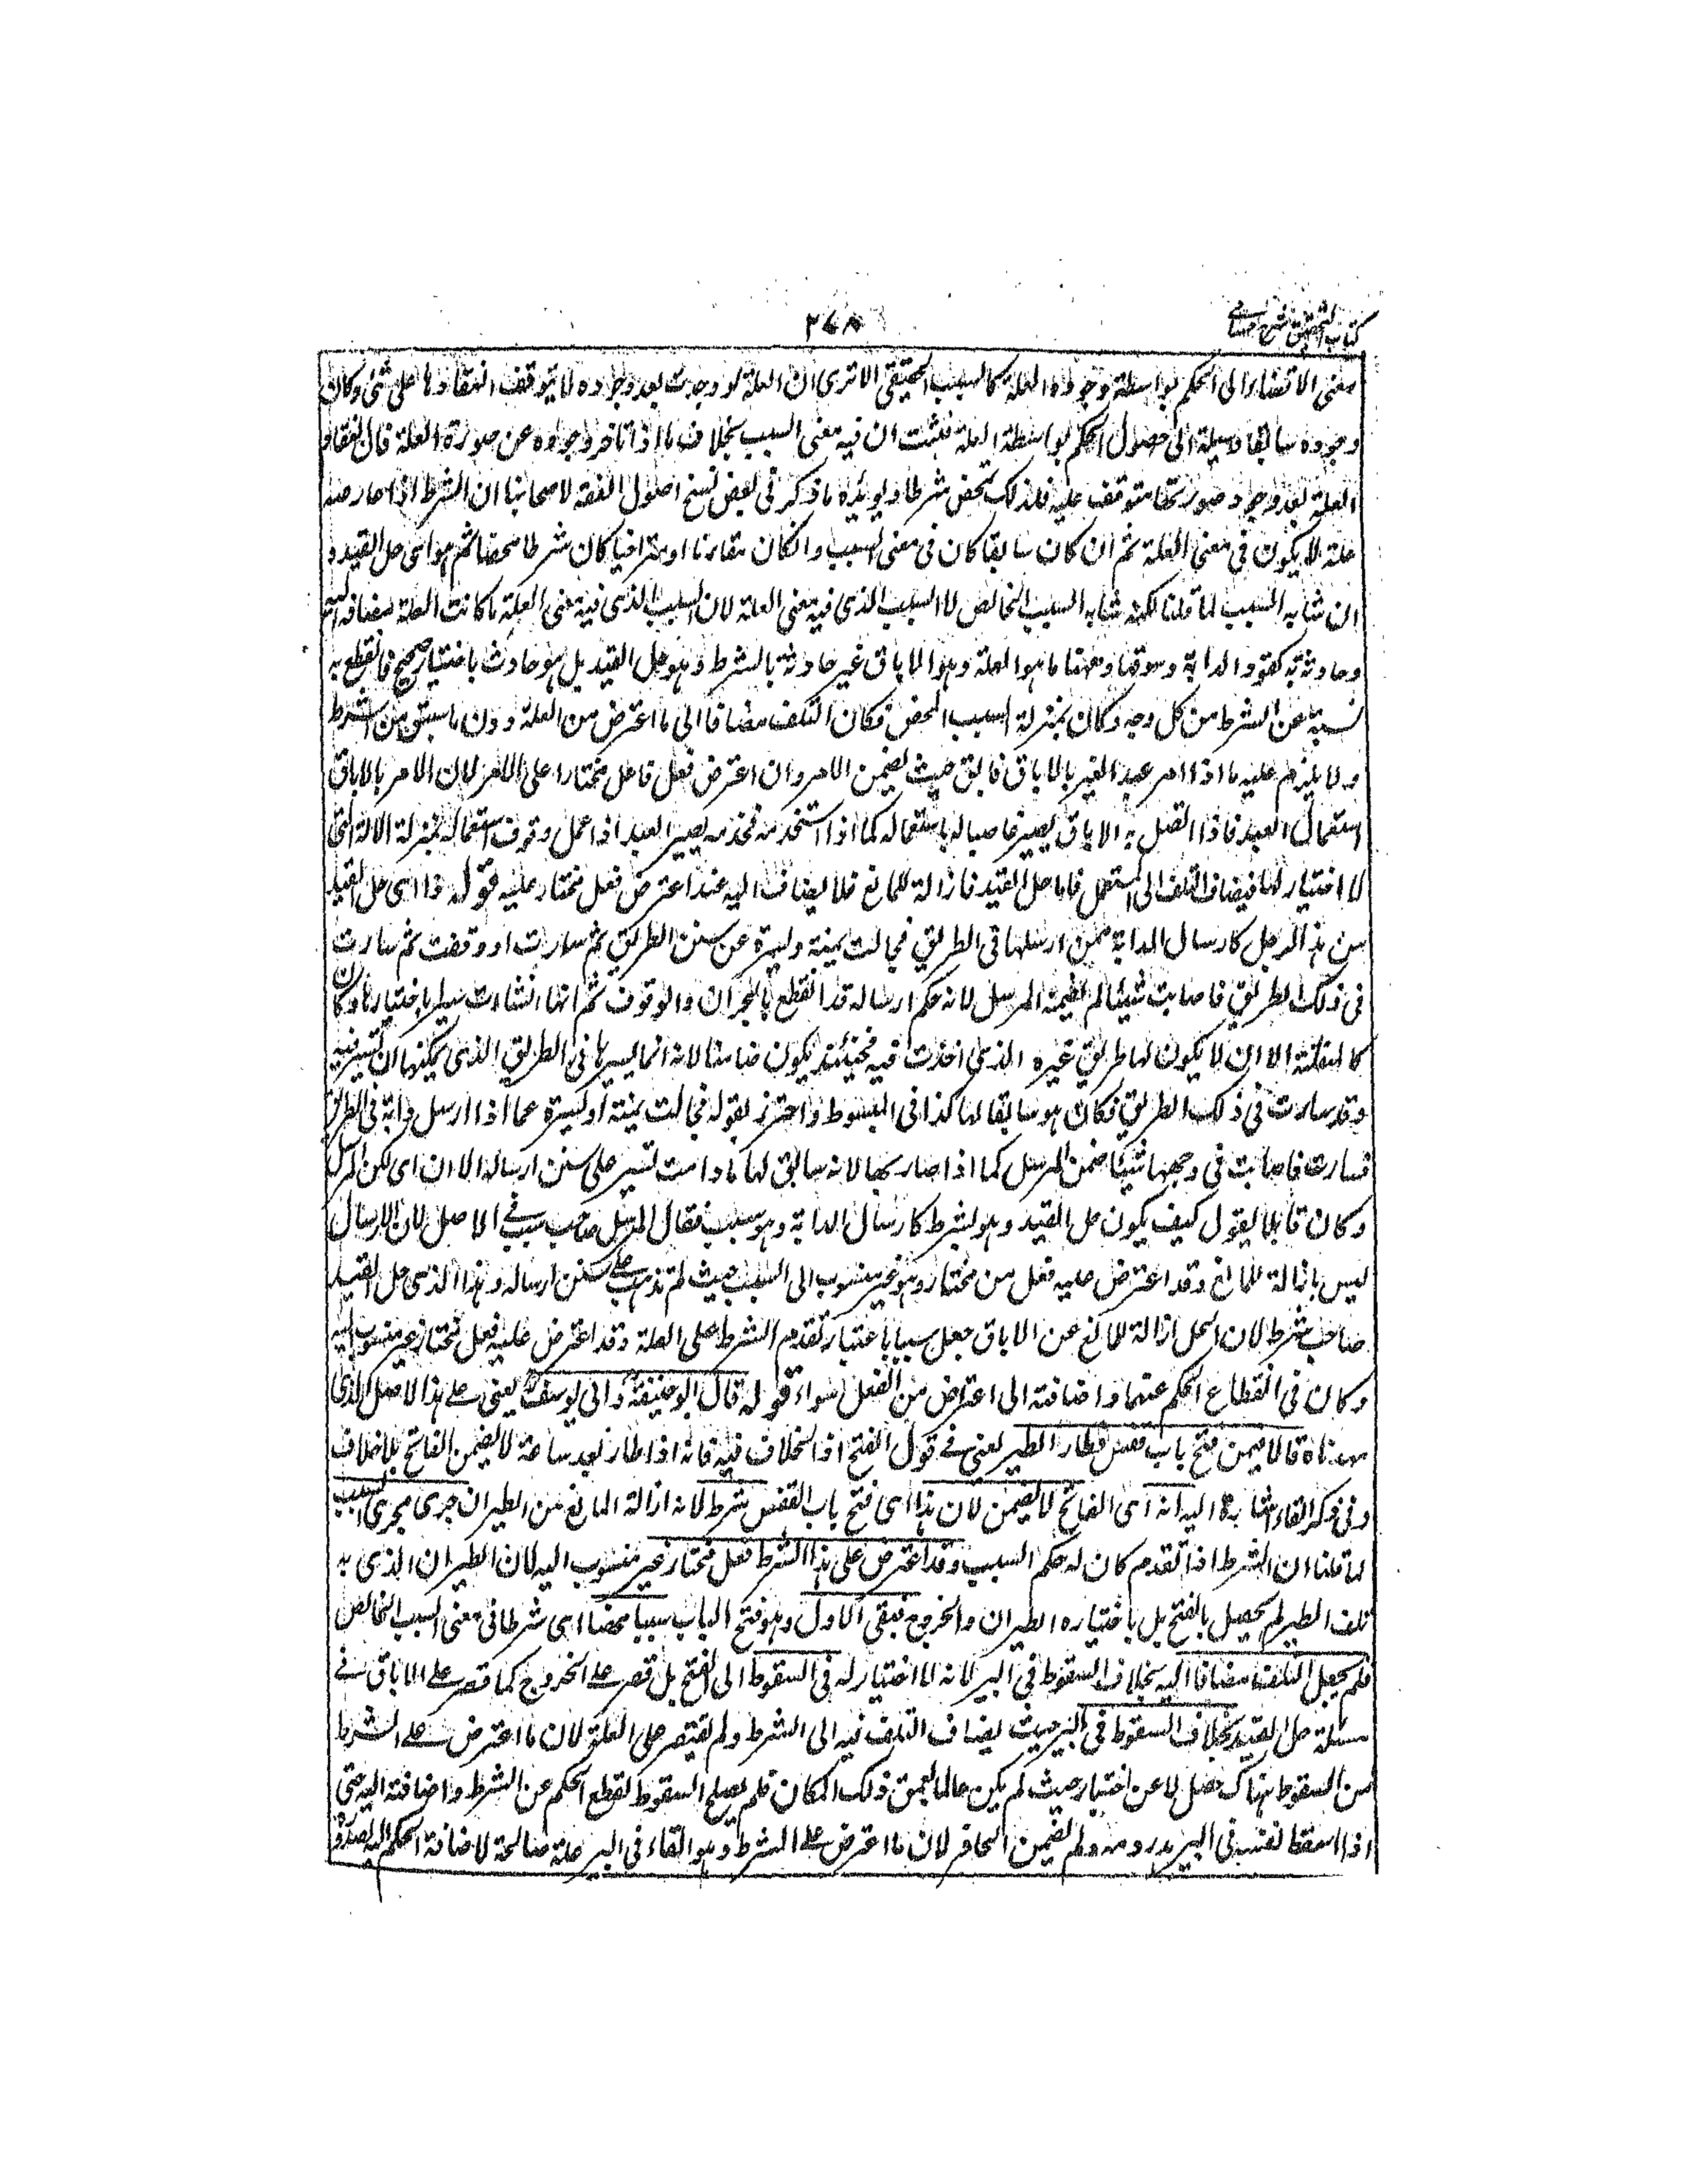 كتاب التحقيق شرح الحسامي
٣٤٨
معنى الافضاء الى الحكم بواسطة وجوده العلة كالسبب الحقيقى الا ترى ان العلة لو وجدت بعد وجوده لا يتوقف انعقادها على شئ وكان
وجوده سابقا وسيلة الى حصول الحكم بواسطة العلة فثبت ان فيه معنى السبب بخلاف ما اذا تاخر وجوده عن صورة العلة فان انعقاد
العلة بعد وجود صورتها متوقف عليه فلذلك تمحض شرطا ويؤيده ما ذكر فى بعض نسخ اصول الفقه لاصحابنا ان الشرط اذا عارضه
علة لا يكون فى معنى العلة ثم ان كان سابقا كان فى معنى السبب وان كان مقارنا او متراخيا كان شرطا محضا ثم هو اى حل القيد و
ان شابه السبب لما قلنا لكنه شابه السبب الخالص لا السبب الذى فيه معنى العلة لان السبب الذى فيه معنى العلة ما كانت العلة مضافة اليه
وحادثة به كقود الدابة وسوقها وههنا ما هو العلة وهو الاباق غير حادثة بالشرط وهو حل القيد بل هو حادث باختيار صحيح فانقطع به
نسبته عن الشرط من كل وجه وكان بمنزلة السبب المحض فكان التلف مضافا الى ما اعترض من العلة دون ما سبق من الشرط
ولا يلزم عليه ما اذا امر عبد الغير بالاباق فابق حيث يضمن الامر وان اعترض فعل فاعل مختار على الامر لان الامر بالاباق
استعمال العبد فاذا اتصل به الاباق يصير غاصبا له باستعماله كما اذا استخدمه فخدمه يصير العبد اذا عمل وقوف استعماله بمنزلة الالة التى
لا اختيار لها فيضاف التلف الى المستعمل فاما حل القيد فازالة للمانع فلا يضاف اليه عند اعتراض فعل مختار عليه قوله هذا اى حل القيد
من هذا الرجل كارسال الدابة ممن ارسلها فى الطريق فجالت يمنة ويسرة عن سنن الطريق ثم سارت او وقفت ثم سارت
فى ذلك الطريق فاصابت شيئا لم يضمنه المرسل لانه حكم ارساله قد انقطع بالجولان والوقوف ثم انها انشات سيرا باختيارها وكان
كالمنفلتة الا ان لا يكون لها طريق غيره الذى اخذت فيه فحينئذ يكون ضامنا لانه انما يسيرها فى الطريق الذى يمكنها ان تسير فيه
وقد سارت فى ذلك الطريق فكان هو سابقا لها كذا فى المبسوط واحترز بقوله فجالت يمنة او يسرة عما اذا ارسل دابة فى الطريق
فسارت فاصابت فى وجهها شيئا ضمن المرسل كما اذا صار بها لانه سابق لها ما دامت تسير على سنن ارساله الا ان اى لكن المرسل
وكان قائلا يقول كيف يكون حل القيد وهو شرط كارسال الدابة وهو سبب فقال المرسل صاحب سبب فى الاصل لان الارسال
ليس بازالة للمانع وقد اعترض عليه فعل من مختار وهو غير منسوب الى السبب حيث لم تذهب على سنن ارساله وهذا الذى حل القيد
صاحب شرط لان الحل ازالة للمانع عن الاباق جعل سببا باعتبار تقدم الشرط على العلة وقد اعترض عليه فعل مختار غير منسوب اليه
وكان فى انقطاع الحكم عنهما واضافته الى اعتراض من الفعل سواء قوله قال ابو حنيفة وابى يوسف يعنى على هذا الاصل الذى
مهدناه قالا فيمن فتح باب قفص فطار الطير يعنى فى قول الفتح اذ الخلاف فيه فانه اذا طار بعد ساعة لا يضمن الفاتح بلا خلاف
وفى ذكر الفاء اشارة اليه انه اى الفاتح لا يضمن لان هذا اى فتح باب القفص شرط لانه ازالة المانع من الطيران جرى مجرى السبب
لما قلنا ان الشرط اذا تقدم كان له حكم السبب وقد اعترض على هذا الشرط فعل مختار غير منسوب اليه لان الطيران الذى به
تلف الطير لم يحصل بالفتح بل باختياره الطيران والخروج فبقى الاول وهو فتح الباب سببا محضا اى شرطا فى معنى السبب الخالص
فلم يجعل التلف مضافا اليه بخلاف السقوط فى البير لانه لا اختيار له فى السقوط الى الفتح بل قصر على الخروج كما قصر على الاباق فى
مسئلة حل القيد بخلاف السقوط فى البير حيث يضاف التلف فيه الى الشرط ولم يقتصر على العلة لان ما اعترض على الشرط
من السقوط هناك حصل لا عن اختيار حيث لم يكن عالما بعمق ذلك المكان فلم يصلح السقوط لقطع الحكم عن الشرط واضافته اليه حتى
اذا اسقط نفسه فى البير هدر دمه ولم يضمن الحافر لان ما اعترض على الشرط وهو القاء فى البير علة صالحة لاضافة الحكم اليه لصدوره